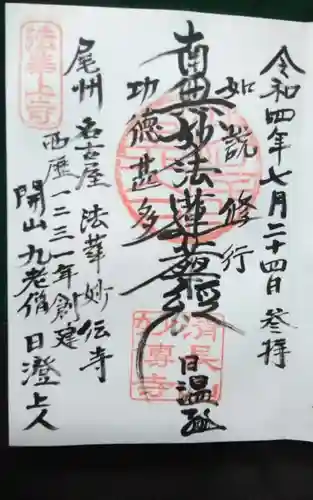 令和四年七月二十四日 参拝
如説修行
南無妙法蓮華経
日温
功徳甚多
尾州 名古屋 法華妙伝寺
西歴一二三一年創建
開山 九老僧 日澄上人